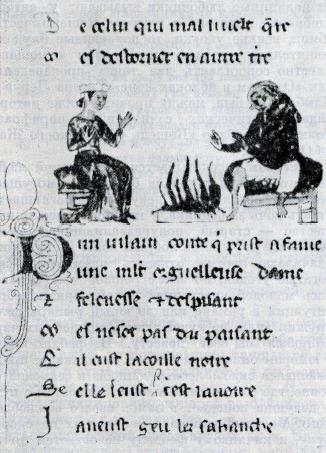 D e celui qui mal li velt q̃re
M es destorner en autre t̃re
D un vilain conte q̃ prist a fame
une mlt orguelleuse dame
felenesse ⁊ despisant
M es ne sot pas du paisant
Q il eust la coille noire
Se elle leust cest la voire
J a neust geu lez sa hanche